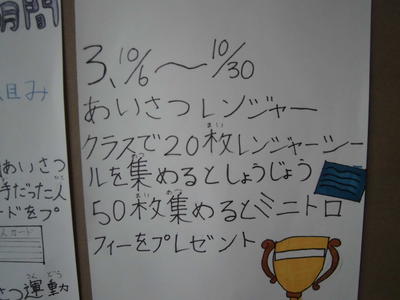 月間
組み
あいさつ
手だった人
ードをプ
人カード
さつ運動
うんどう
3、10/6〜10/30
あいさつレンジャー
クラスで20枚レンジャーシー
まい
ルを集めるとしょうじょう
あつ
50枚集めるとミニトロ
まいあつ
フィーをプレゼント